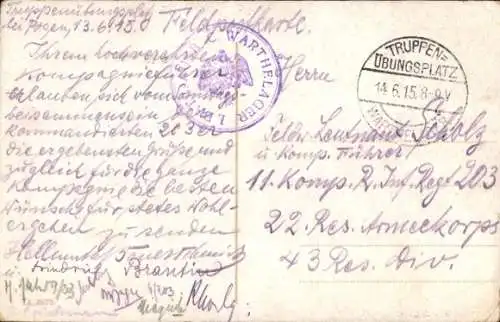 Truppenübungsplatz
bei Posen, 13.6.15.
Feldpostkarte.
Ihrem hochverehrten
Kompagnieführer
erlauben sich vom
beisammensein
kommandierten 203er
die ergebensten Grüße und
zugleich für die ganze
Kompagnie die besten
Wünsche für stetes Wohl-
ergehen zu senden
Hellmuth
u. Friedrich
WARTHELAGER
TRUPPEN=
ÜBUNGSPLATZ
14.6.15.8-9V
Herrn
Feldw. Leutnant Scholz
u. Komp. Führer
11. Komp. R. Inf. Regt 203
22. Res. Armeekorps
43 Res. Div.